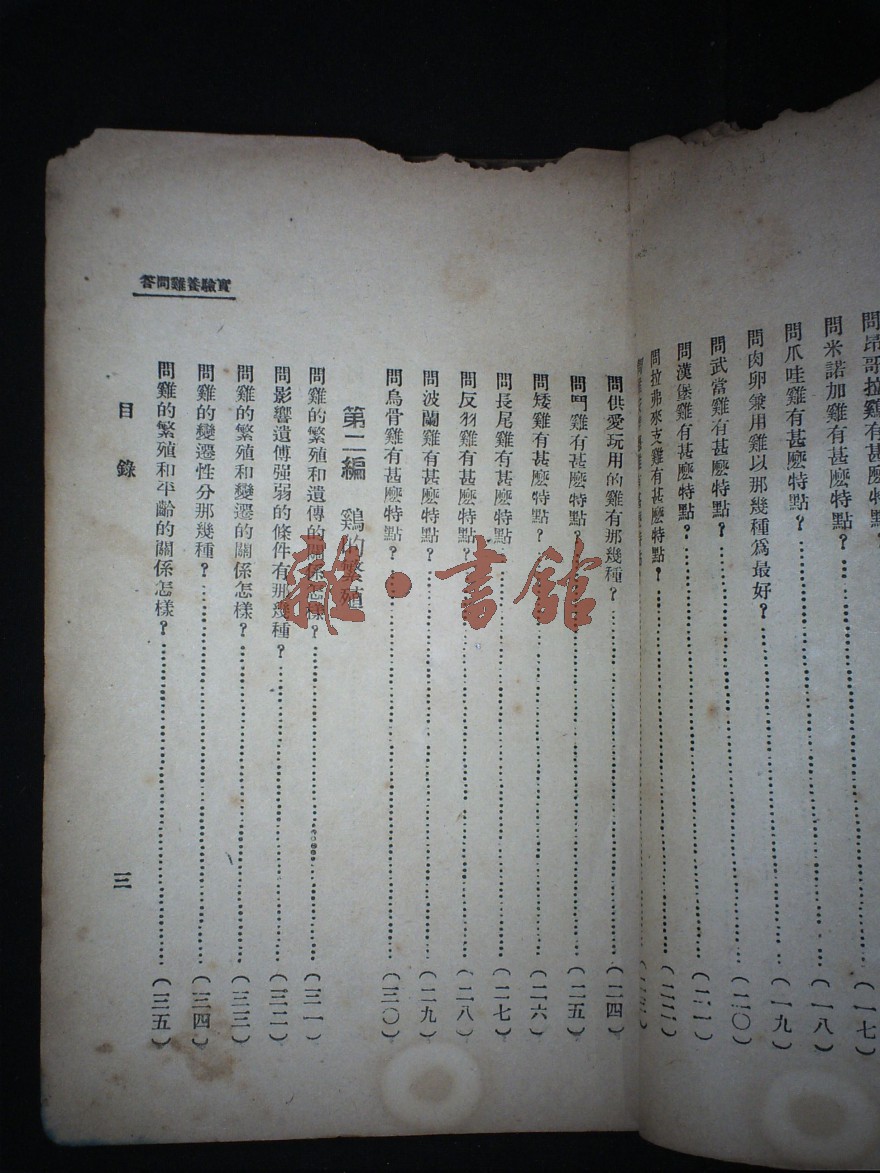 問昂哥拉鷄有甚麼特點？（一七）
問米諾加雞有甚麼特點？（一八）
問爪哇雞有甚麼特點？（一九）
問肉卵兼用雞以那幾種爲最好？（二〇）
問武當雞有甚麼特點？（二一）
問漢堡雞有甚麼特點？
問拉弗來支雞有甚麼特點？
問供愛玩用的雞有那幾種？（二四）
問鬥雞有甚麼特點？（二五）
問矮雞有甚麼特點？（二六）
問長尾雞有甚麼特點？（二七）
問反羽雞有甚麼特點？（二八）
問波蘭雞有甚麼特點？（二九）
問烏骨雞有甚麼特點？（三〇）
第二編　鷄的繁殖
問雞的繁殖和遺傳的關係怎樣？（三一）
問影響遺傳强弱的條件有那幾種？（三二）
問雞的繁殖和變遷的關係怎樣？（三三）
問雞的變遷性分那幾種？（三四）
問雞的繁殖和年齡的關係怎樣？（三五）
實驗養雞問答
目錄
三
雜·書館